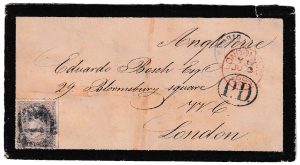 Angleterre
Eduardo Bosch Esqre
29 Bloomsbury square
W C
London
PD